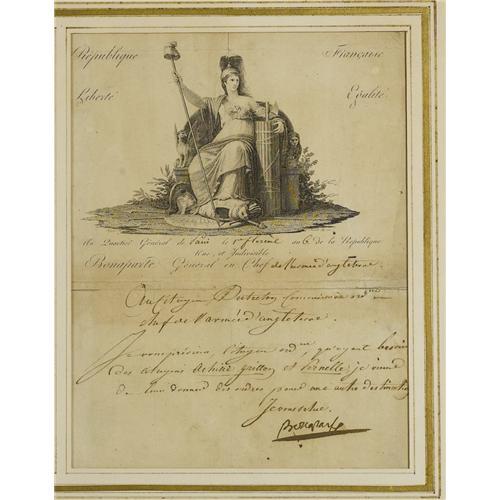 République Française
Liberté Egalité
Au Quartier Général de Paris le 1er floréal an 6 de la République
Une et Indivisible
Bonaparte Général en Chef de l'armée d'angleterre
Au Citoyen Commissaire
chef de l'armée d'angleterre.
Je vous préviens, Citoyen ord qu'ayant besoin
des citoyens et je viens
de leur donner des ordres pour une autre destination
Je vous salue.
Bonaparte